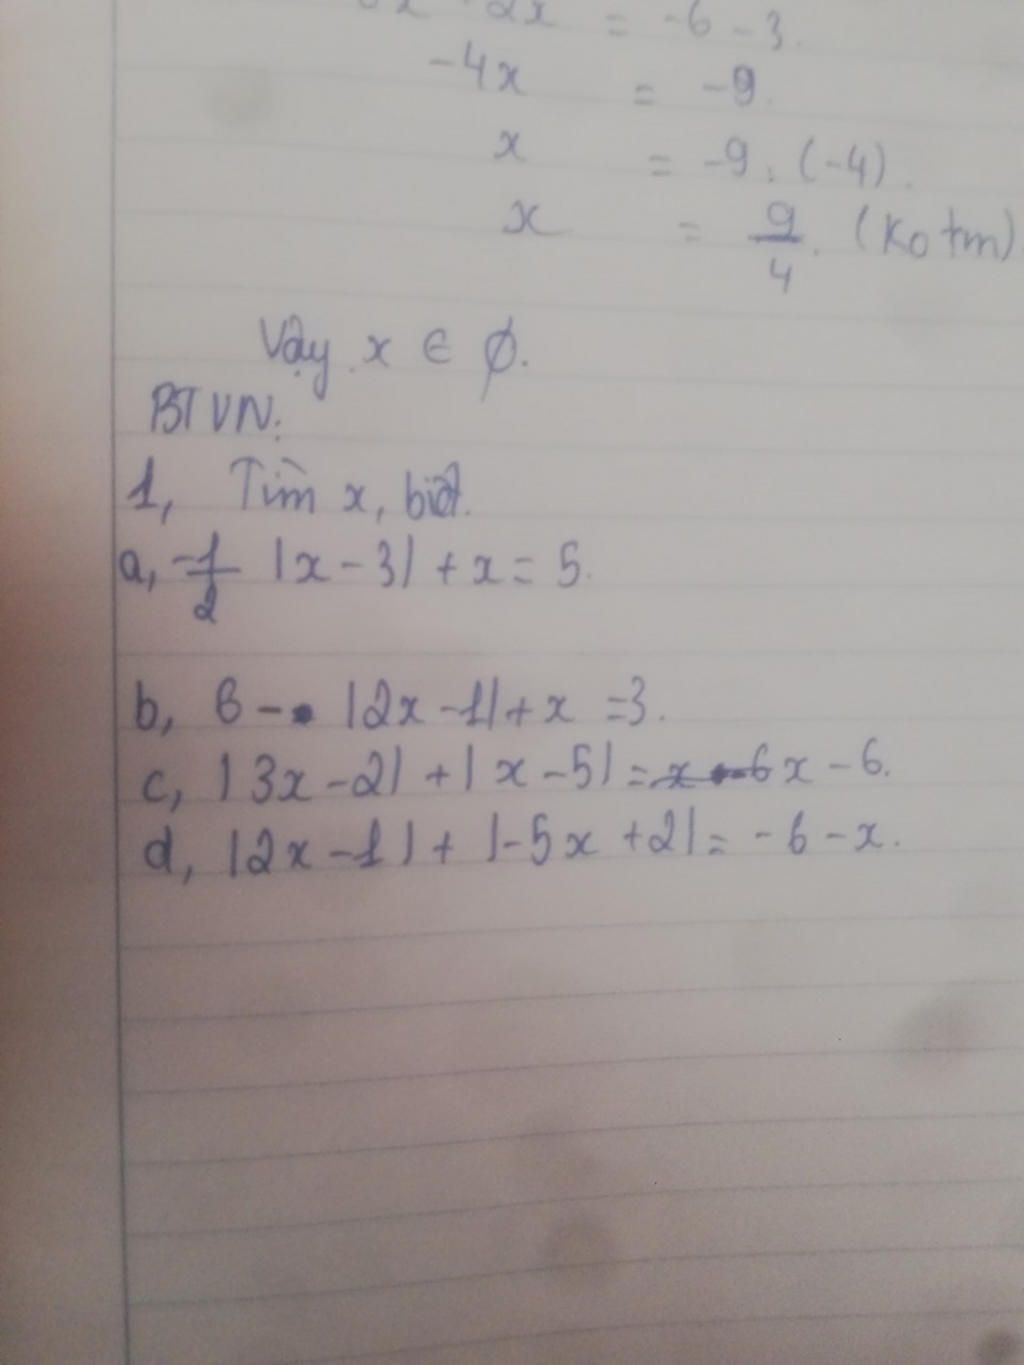 2x = -6 - 3.
-4x = -9.
x = -9 : (-4).
x = 9/4. (Ko tm)
Vậy x ∈ ∅.
BTVN:
1, Tìm x, biết.
a, -1/2 |x - 3| + x = 5.
b, 6 - |2x - 1| + x = 3.
c, |3x - 2| + |x - 5| = x - 6.
d, |2x - 1| + |-5x + 2| = -6 - x.